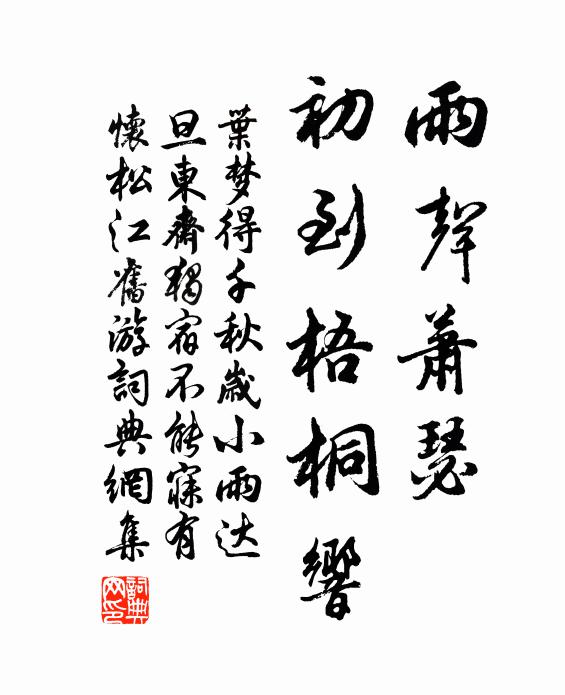 雨聲蕭瑟
初到梧桐響
葉梦得千秋歲小雨达
旦東齋獨宿不能寐有
懷松江舊游詞典網集
詞典
网印